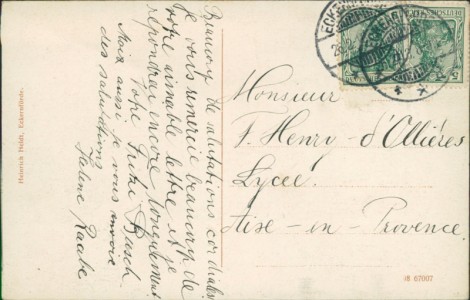 Beaucoup de salutations cordiales
Je vous remercie beaucoup de
votre aimable lettre et je
repondrai encore longuement
Votre Fritz Busch.
Mois aussi je vous envoie
des salutations
Helene Raabe
Heinrich Heldt, Eckernförde.
ECKERNFÖRDE
Monsieur
F. Henry-d'Ollières
Lycée
Aise-en-Provence.
18 67007